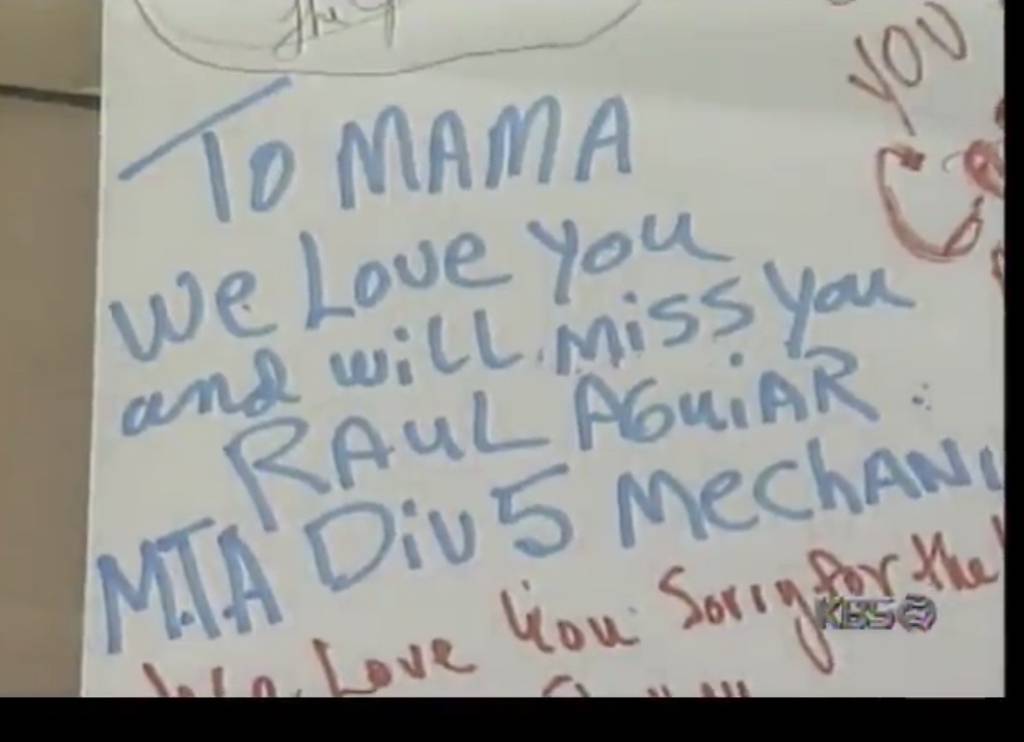 The
YOU
TO MAMA
We Love you
and will miss you
RAUL AGuiAR
M.T.A Div 5 MechANi
We Love You Sorry for the
KBS